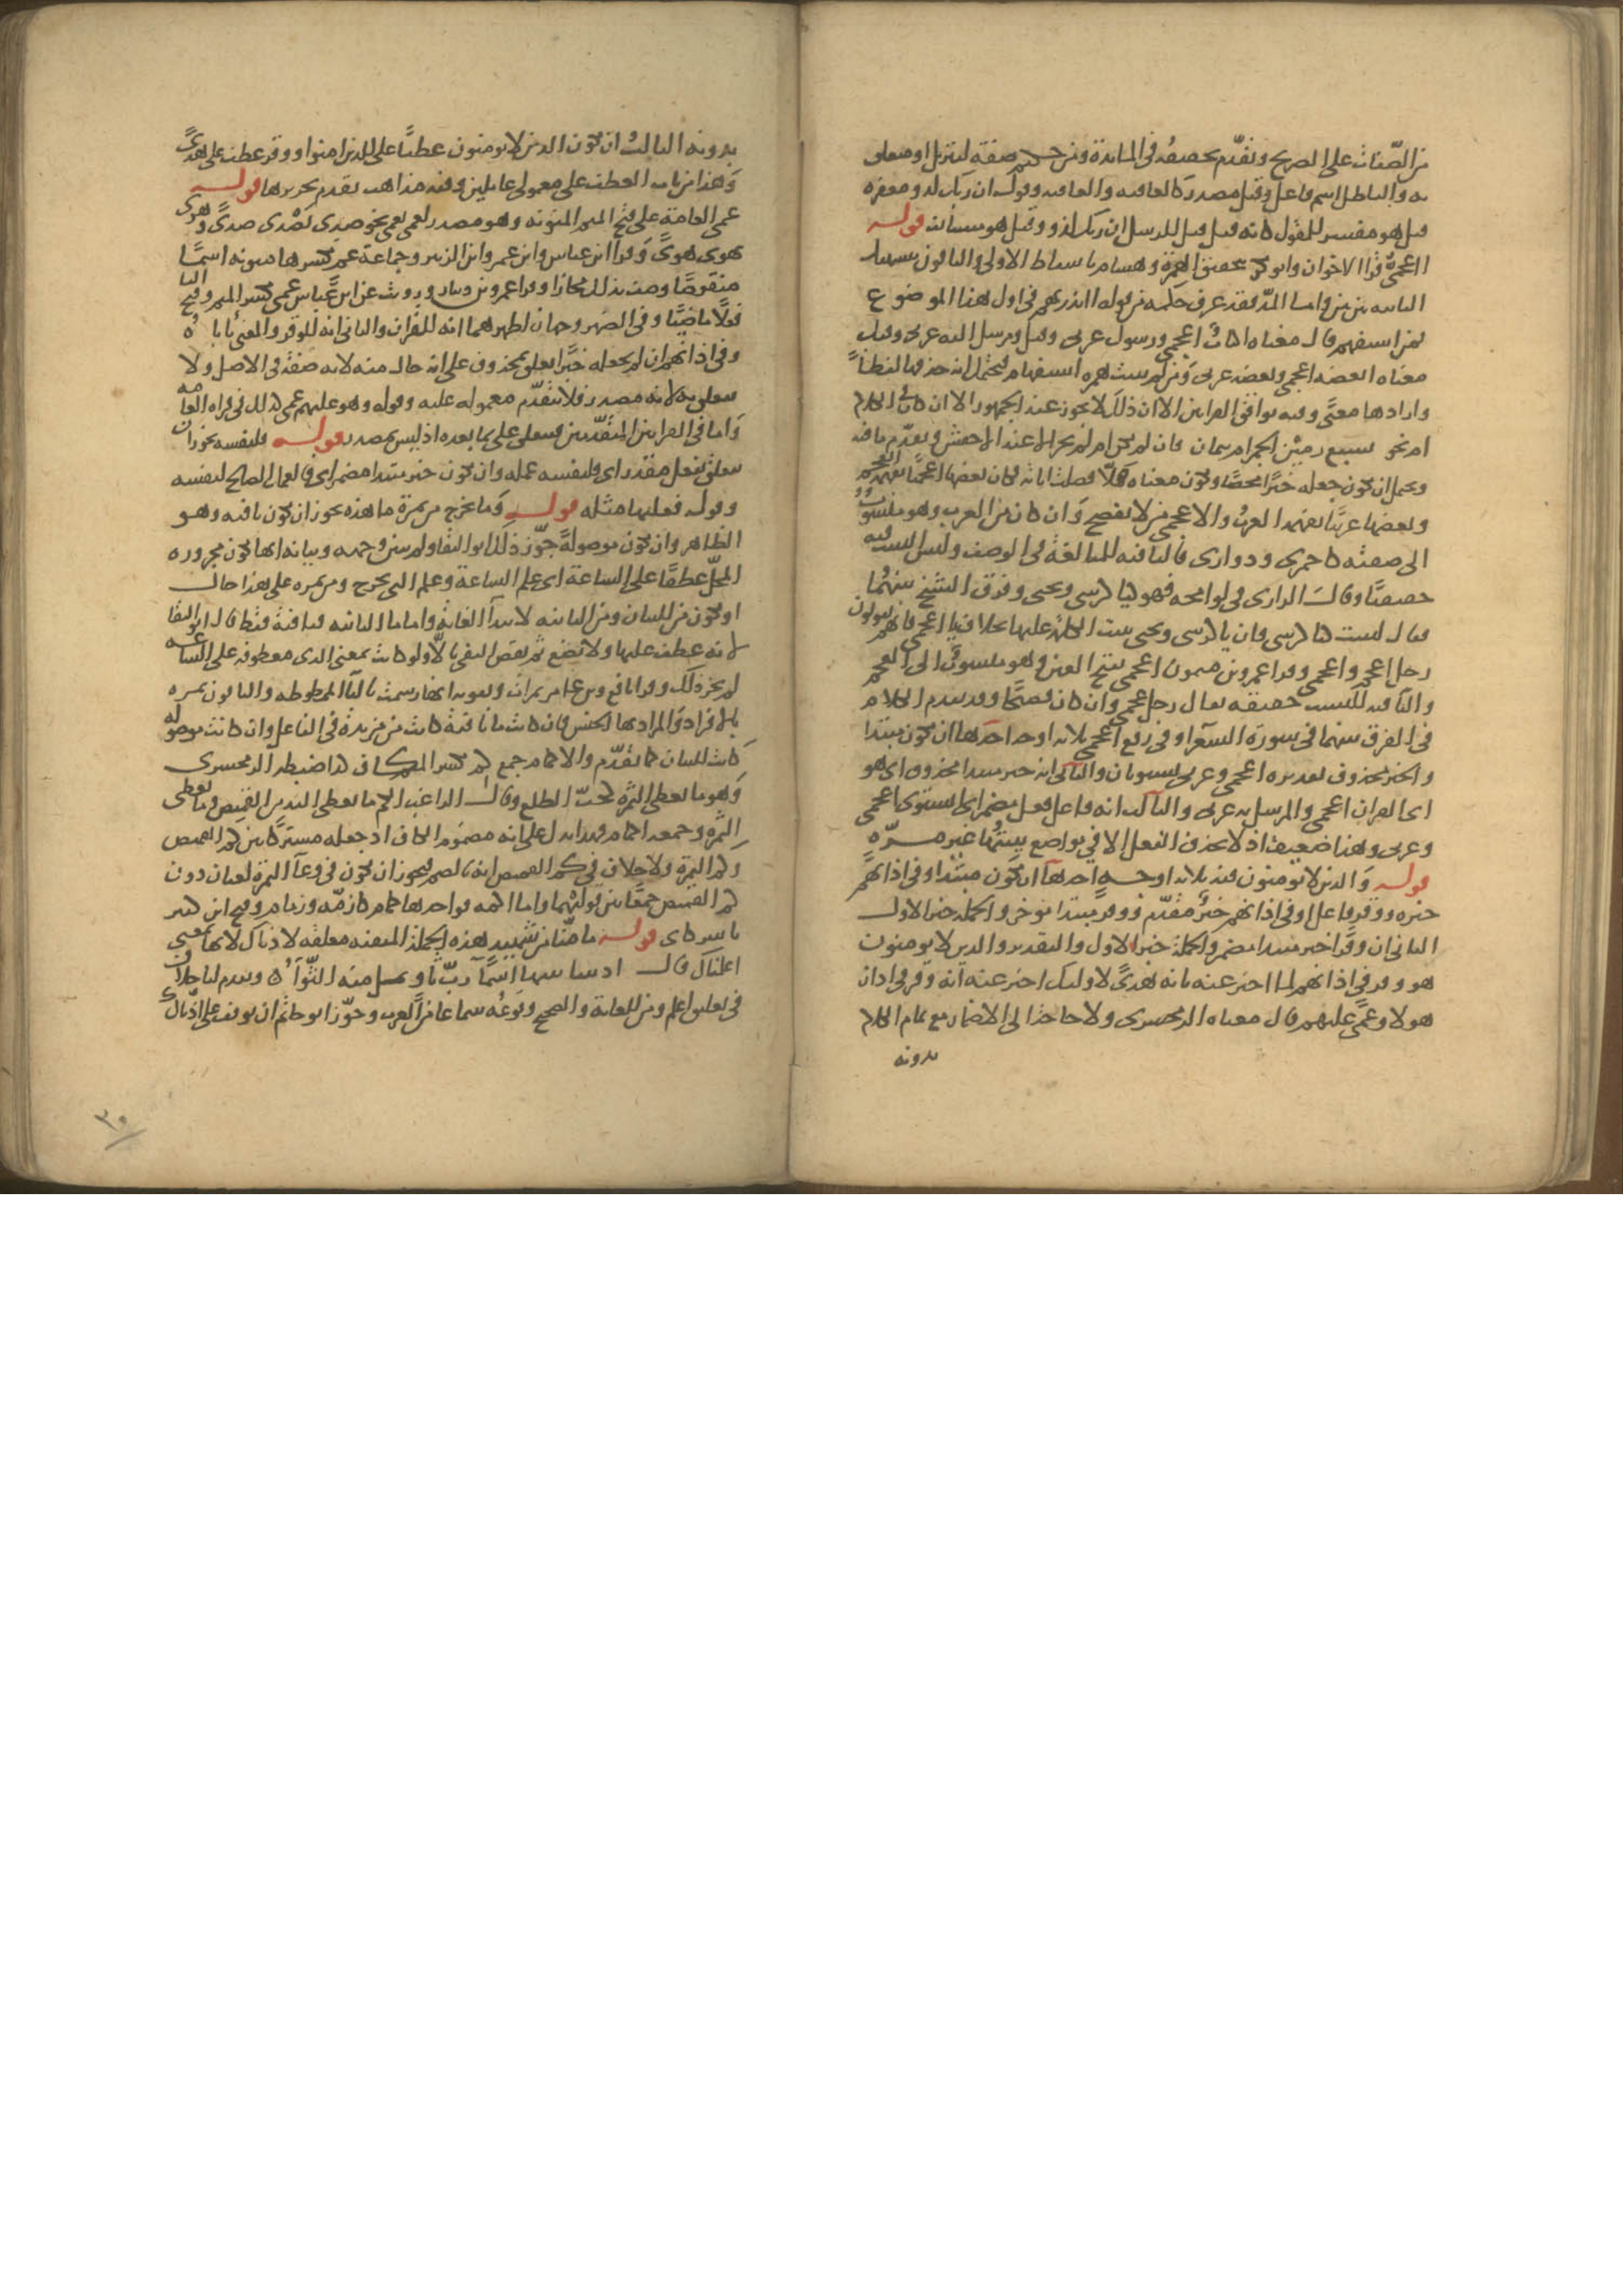 من الصّفات على الصريح وتقدّم تحقيقه في المائدة ومن حكيم صفة لتنزيل او متعلق
به والباطل اسم فاعل وقيل مصدر كالعافيه والعاقبه وقوله ان ربك لذو مغفره
قيل هو مفسر للمقول كانه قيل قيل للرسل ان ربك لذو وقيل هو مستأنف قوله
ااعجميّ قرا الاخوان وابو بكر بتحقيق الهمزة وهشام باسقاط الاولى والباقون بتسهيل
الثانيه بين بين واما المدّ فقد عرف حكمه من قوله اانذرتهم في اول هذا الموضوع
فمن استفهم قال معناه اكتابٌ اعجمي ورسول عربي وقيل ومرسل اليه عربي وقيل
معناه ابعضه اعجمي وبعضه عربي ومن لم يثبت همزه استفهام فيحتمل انه حذفها لفظاً
وارادها معنًى وفيه توافق القراتين الا ان ذلك لا يجوز عند الجمهور الا ان كان في الكلام
ام نحو بسبع رمين الجمر ام بثمان فان لم تكن ام لم يجز الا عند الاخفش وتقدّم ما فيه
ويحتمل ان يكون جعله خبرًا محضًا ويكون معناه هلّا فصلت اياته فكان بعضها اعجميًا تفهمه العجم
وبعضها عربيًا تفهمه العربُ والاعجمي من لا يفصح وان كان من العرب وهو منسوبٌ
الى صفته كاحمري ودواري فاليا فيه للمبالغة في الوصف وليس النسب فيه
حقيقيًا وقال الرازي في لوامحه فهو كيا كرسي وبختي وفرق الشيخ بينهما
فقال ليست كيا كرسي فان يا كرسي وبختي بنيت الكلمة عليها بخلاف يا اعجمي فانهم يقولون
رجل اعجم واعجمي وقرا عمرو بن ميمون اعجمي بفتح العين وهو منسوبٌ الى العجم
واليا فيه للنسب حقيقه يقال رجل عجمي وان كان فصيحًا وقد تقدم الكلام
في الفرق بينهما في سورة الشعرا وفي رفع اعجمي ثلاثه اوجه احدها ان يكون مبتدا
والخبر محذوف تقديره اعجمي وعربي يستويان والثاني انه خبر مبتدا محذوف اي هو
اي القران اعجمي والمرسل به عربي والثالث انه فاعل فعل مضمر اي ايستوي اعجمي
وعربي وهذا ضعيف اذ لا يحذف الفعل الا في مواضع بينتُها غير مرّه
قوله والذين لا يومنون فيه ثلاثه اوجه احدها ان يكون مبتدا وفي اذانهم
خبره ووقر فاعل او في اذانهم خبرٌ مقدّم ووقر مبتدا موخر والجملة خبر الاول
الثاني ان وقرًا خبر مبتدا مضمر والجملة خبر الاول والتقدير والذين لا يومنون
هو وقر في اذانهم لما اخبر عنه بانه هدًى لاوليك اخبر عنه انه وقر في اذان
هولا وعمًى عليهم قال معناه الزمخشري ولا حاجة الى الاضمار مع تمام الكلام
بدونه
بدونه الثالث ان يكون الذين لا يومنون عطفًا على للذين امنوا ووقر عطف على هدًى
وهذا من باب العطف على معمولي عاملين وفيه مذاهب تقدم تحريرها قوله
عمى العامة على فتح الميم المنونه وهو مصدر لعمي يعمى نحو صدي يصدى صدًى وهوي
يهوى هوًى وقرا ابن عباس وابن عمر وابن الزبير وجماعة عمٍ بكسرها منونه اسمًا
منقوصًا وصف بذلك مجازا وقرا عمرو بن دينار ورويت عن ابن عباس عمي بكسر الميم وفتح اليا
فعلًا ماضيًا وفي الضمير وجهان اظهرهما انه للقران والثاني انه للوقر والمعنى ياباه
وفي اذانهم ان لم نجعله خبرًا يعلق بمحذوف على انه حال منه لانه صفة في الاصل ولا
يتعلق به لانه مصدر فلا يتقدّم معموله عليه وقوله وهو عليهم عمى كذلك في قراه العامه
واما في القراتين المتقدّمتين فيتعلق على بما بعده اذ ليس بمصدر قوله فلنفسه يجوز ان
يتعلق بفعل مقدر اي فلنفسه عمله وان يكون خبر مبتدا مضمر اي فالعمل الصالح لنفسه
وقوله فعليها مثله قوله وما تخرج من ثمرة ما هذه يجوز ان تكون نافيه وهو
الظاهر وان تكون موصولةً جوّز ذلك ابو البقا ولم يبين وجهه وبيانه انها تكون مجروره
المحلّ عطفًا على الساعة اي علم الساعة وعلم التي تخرج ومن ثمره على هذا حال
او تكون من للبيان ومن الثانيه لابتدآ الغاية واما ما الثانيه فنافيةٌ فقط قال ابو البقا
لانه عطف عليها ولا تضع ثم نقض النفي بالّا ولو كانت بمعنى الذي معطوفه على الساعه
لم يجز ذلك وقرا نافع وابن عامر ثمرات ويقويه انها رسمت بالتآ الممطوطه والباقون ثمره
بالافراد والمراد بها الجنس فان كانت ما نافيةً كانت من مزيدة في الفاعل وان كانت موصوله
كانت للبيان كما تقدّم والاكمام جمع كم بكسر الكاف كذا ضبطه الزمخشري
وهو ما يغطي الثمرة كجفّ الطلع وقال الراغب الكم ما يغطي اليد من القميص وما يغطي
الثمرة وجمعه اكمام فهذا يدل على انه مضموم الكاف اذ جعله مشتركًا بين كم القميص
وكم الثمرة ولا خلاف في كم القميص انه بالضم فيجوز ان يكون في وعآ الثمرة لغتان دون
كم القميص جمعًا بين قوليهما واما اكمه فواحدها كمام كازمّه وزمام وفتح ابن كثير
يا شركاي قوله ما منّا من شهيد هذه الجملة المنفيه معلقه لاذناك لانها بمعنى
اعلمناك قال اذنتنا ببينها اسمآ ربّ ثاوٍ يمل منه الثّوآءُ وتقدم لنا خلاف
في تعليق اعلم ومن للعامة والصحيح وقوعُه سماعا من العرب وجوّز ابو حاتم ان يوقف على اذنّاك
٣٠